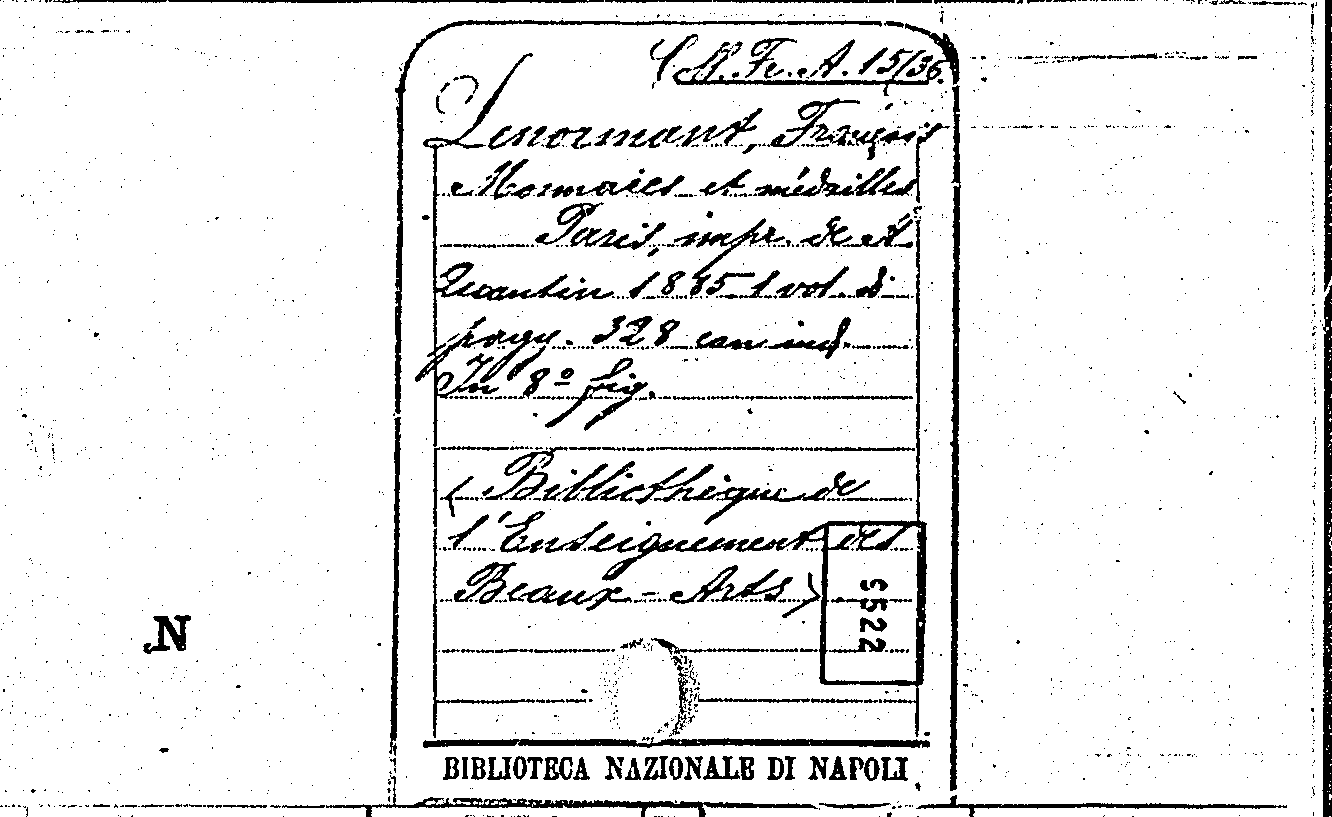 (M. Fr. A. 15/36.
Lenormant, François
Monnaies et médailles
Paris, impr. de A.
Quantin 1885 1 vol. di
pagg. 328 con ind.
In 8º fig.
(Bibliothèque de
l'Enseignement des
Beaux-Arts)
5522
N
BIBLIOTECA NAZIONALE DI NAPOLI